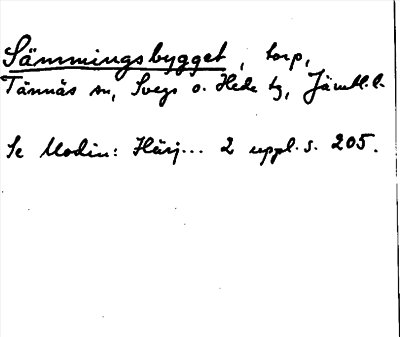 Sämmingsbygget, torp,
Tännäs sn, Svegs o. Hede tg, Jämtl. l.
Se Modin: Härj... 2 uppl. s. 205.